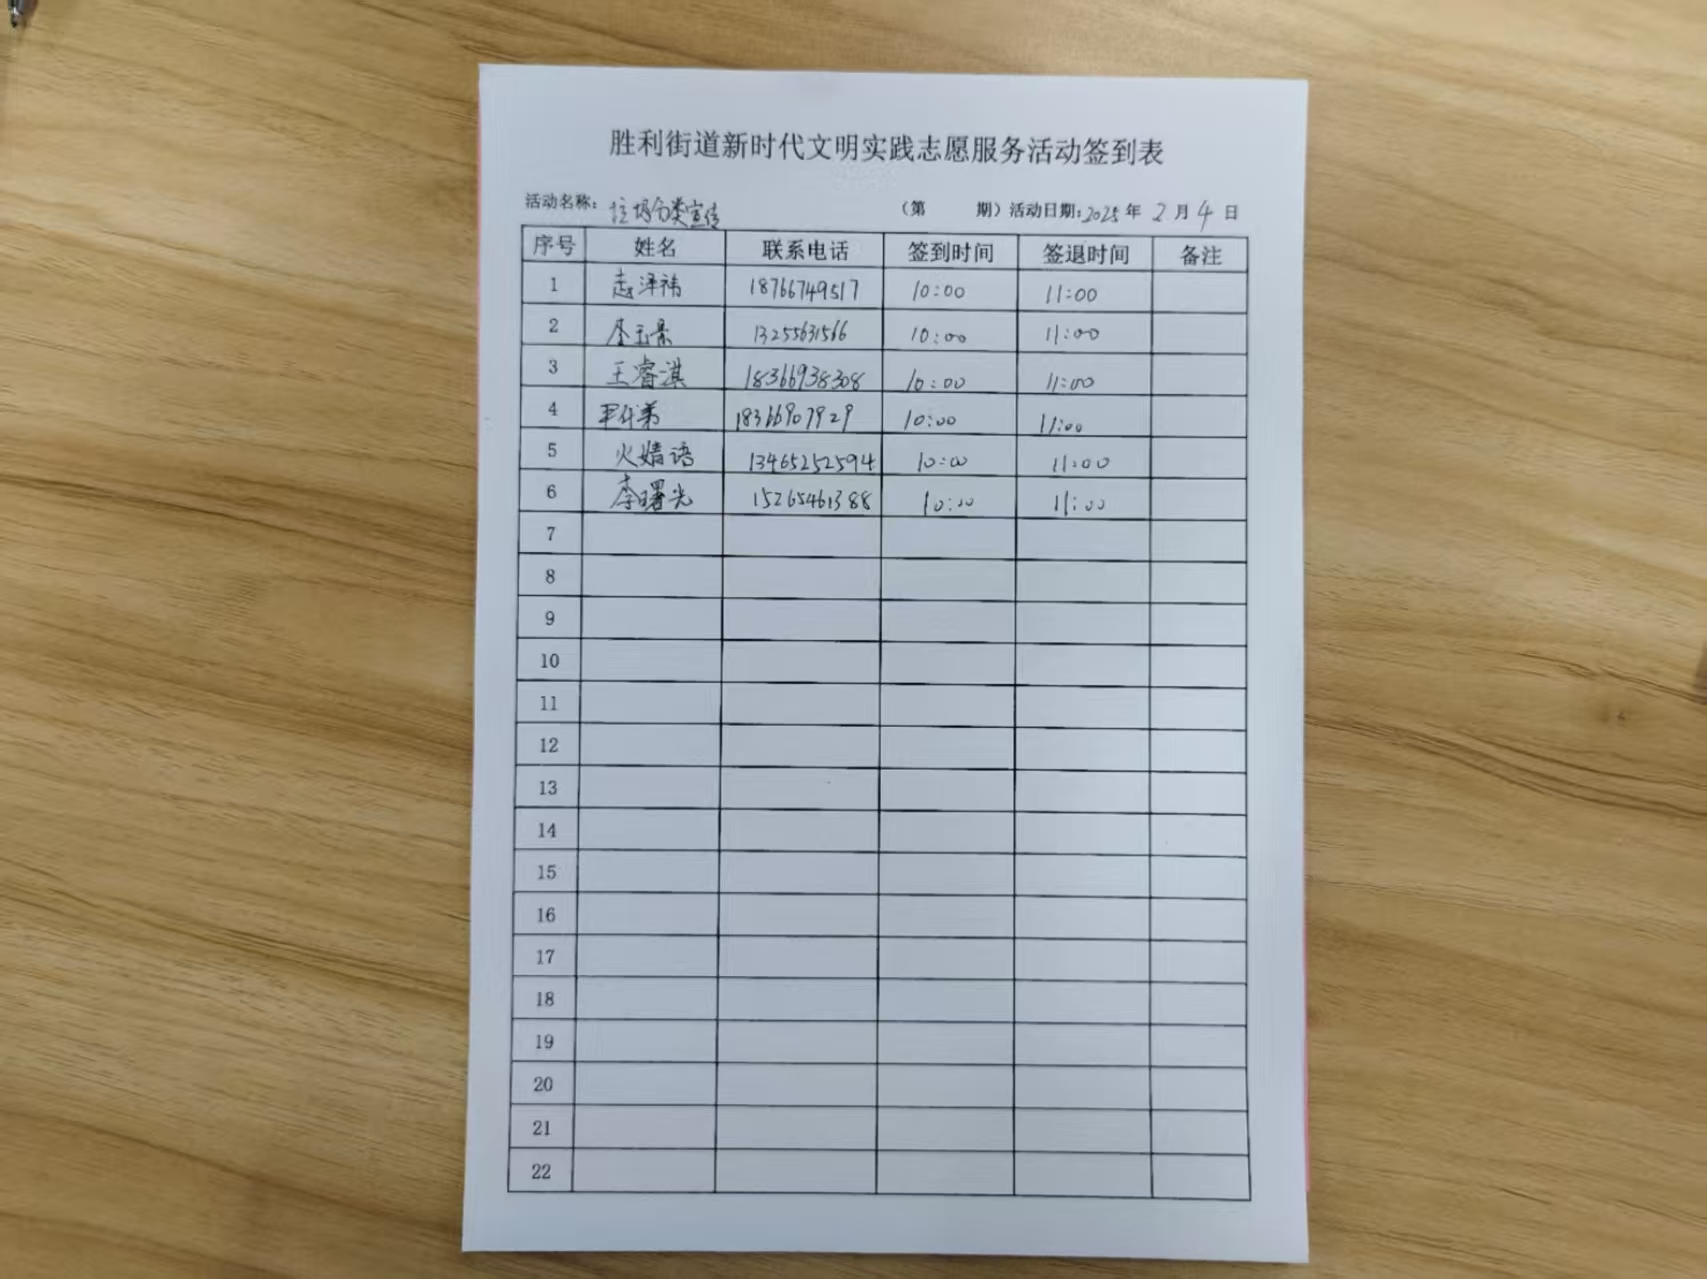 胜利街道新时代文明实践志愿服务活动签到表
活动名称：垃圾分类宣传 （第 期）活动日期：2025年 2月 4日
序号 姓名 联系电话 签到时间 签退时间 备注
1 赵泽祎 18766749517 10:00 11:00
2 李玉景 13255631566 10:00 11:00
3 王睿淇 18366938308 10:00 11:00
4 18366907929 10:00 11:00
5 火婧语 13465252594 10:00 11:00
6 李曙光 15265461388 10:00 11:00
7
8
9
10
11
12
13
14
15
16
17
18
19
20
21
22